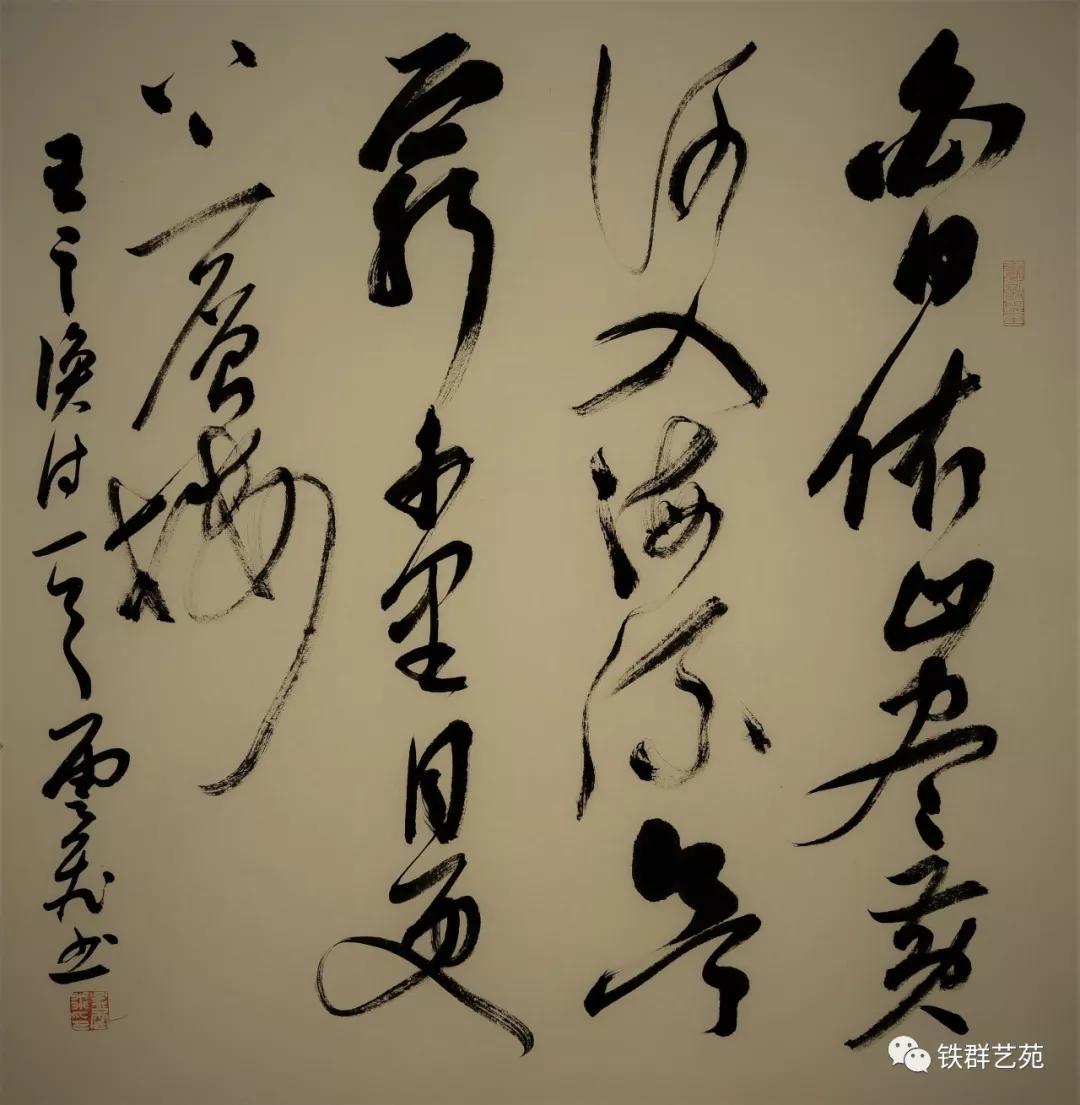 白日依山尽黄
河入海流欲
窮千里目更
上一層樓
王之涣诗一首 雲书
铁群艺苑